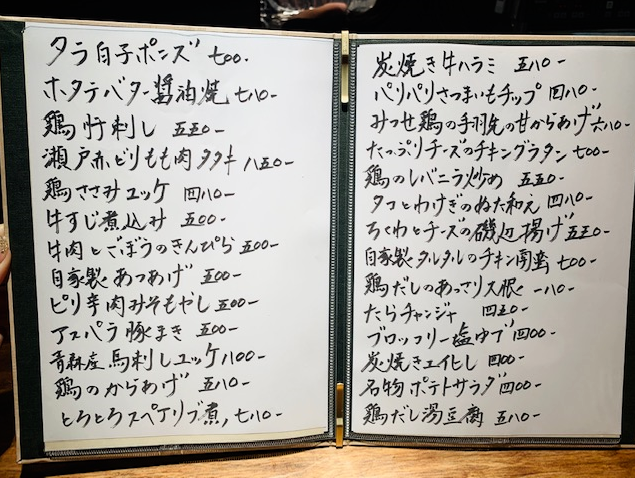 タラ白子ポンズ 七00-
ホタテバター醤油焼 七八0-
鶏肝刺し 五五0-
瀬戸赤どりもも肉タタキ 八五0-
鶏ささみユッケ 四八0-
牛すじ煮込み 五00-
牛肉とごぼうのきんぴら 五00-
自家製あつあげ 五00-
ピリ辛肉みそもやし 五00-
アスパラ豚まき 五00-
青森産馬刺しユッケ 1100-
鶏のからあげ 五八0-
とろとろスペアリブ煮 七八0-
炭焼き牛ハラミ 五八0-
パリパリさつまいもチップ 四八0-
みつせ鶏の手羽先の甘からあげ 六八0-
たっぷりチーズのチキングラタン 七00-
鶏のレバニラ炒め 五五0-
タコとわけぎのぬた和え 四八0-
ちくわとチーズの磯辺揚げ 五五0-
自家製タルタルのチキン南蛮 七00-
鶏だしのあっさり大根 一八0-
たらチャンジャ 四五0-
ブロッコリー塩ゆで 四00-
炭焼きエイヒレ 四00-
名物ポテトサラダ 四00-
鶏だし湯豆腐 五八0-